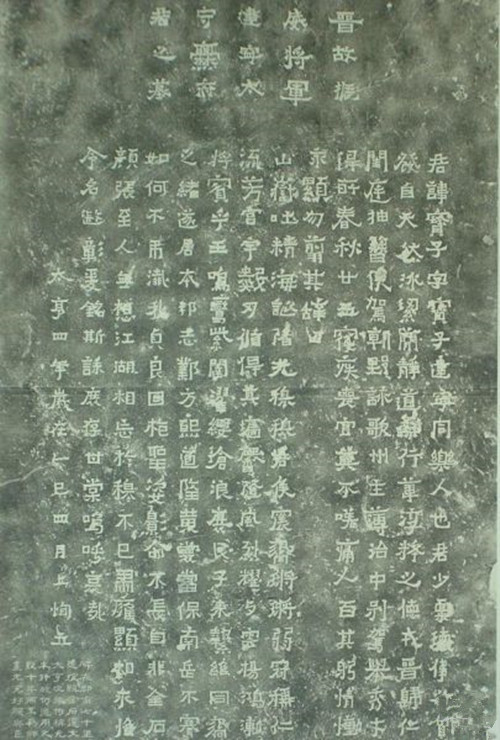 晉故振
威將軍
建寧太
守爨府
君之墓
君諱寶子字寶子建寧同樂人也君少稟瓌偉之質
發自天然冰絜蕑靜道兼行葦淳粹之德戎晉歸仁
閨庭抽簪俟駕朝野詠歌州主簿治中別駕舉秀才
得所春秋廿五寑疾喪官莫不嗟痛人百其躬情慟
永顯勿翦其辭曰
山嶽吐精海誕陼光穆穆君侯震響鏘鏘弱冠稱仁
流芳宮宇數仞循得其墻馨隨風烈耀與雲揚鴻漸
將賓乎王鳴鸞紫闥濯纓滄浪庶民子來縶維同響
之緒遂居本邦志鄴方熙道隆黃裳當保南岳不騫
如何不弔殲我貞良回抱聖姿影命不長自非金石
顏張至人無想江湖相忘於穆不已肅雍顯相永惟
令名遐彰爰銘斯誄庶存甘棠嗚呼哀哉
太亨四年歲在乙巳四月上恂立